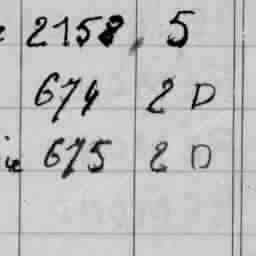 2158 5
674 2 D
675 2 D